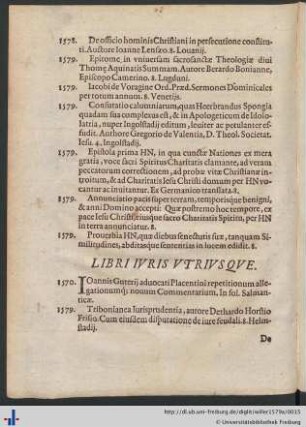 1578. De officio hominis Christiani in persecutione constituti. Auctore Ioanne Lenseo. 8. Louanij.
1579. Epitome in vniuersam sacrosanctæ Theologiæ diui
Thomę Aquinatis Summam. Autore Berardo Bonianne,
Episcopo Camerino. 8. Lugduni.
1579. Iacobi de Voragine Ord. Præd. Sermones Dominicales
per totum annum. 8. Venetijs.
1579. Confutatio calumniarum, quas Heerbrandus Spongia
quadam sua complexus est, & in Apologeticum de Idololatria,
nuper Ingolstadij editum, leuiter ac petulanter effudit.
Authore Gregorio de Valentia, D. Theol. Societat.
Iesu. 4. Ingolstadij.
1579. Epistola prima HN, in qua cunctæ Nationes ex mera
gratia, voce sacri Spiritus Charitatis clamante, ad veram
peccatorum correctionem, ad probæ vitæ Christianæ introitum,
& ad Charitatis Iesu Christi domum per HN vocantur
ac inuitantur. Ex Germanico translata. 8.
1579. Annunciatio pacis super terram, temporisque benigni,
& anni Domino accepti: Quæ postremo hoc tempore, ex
pace Iesu Christi, eiusque sacro Charitatis Spiritu, per HN
in terra annunciatur. 8.
1579. Prouerbia HN, quæ diebus senectutis suæ, tanquam Similitudines,
abditasque sententias in lucem edidit. 8.
LIBRI IVRIS VTRIVSQVE.
1570. IOannis Guterij aduocati Placentini repetitionum allegationumq;
nouum Commentarium. In fol. Salmanticæ.
1579. Tribonianea Iurisprudentia, autore Dethardo Horstio
Frisio. Cum eiusdem disputatione de iure feudali. 8. Helmstadij.
De
http://dl.ub.uni-freiburg.de/diglit/willer1579a/0015
© Universitätsbibliothek Freiburg